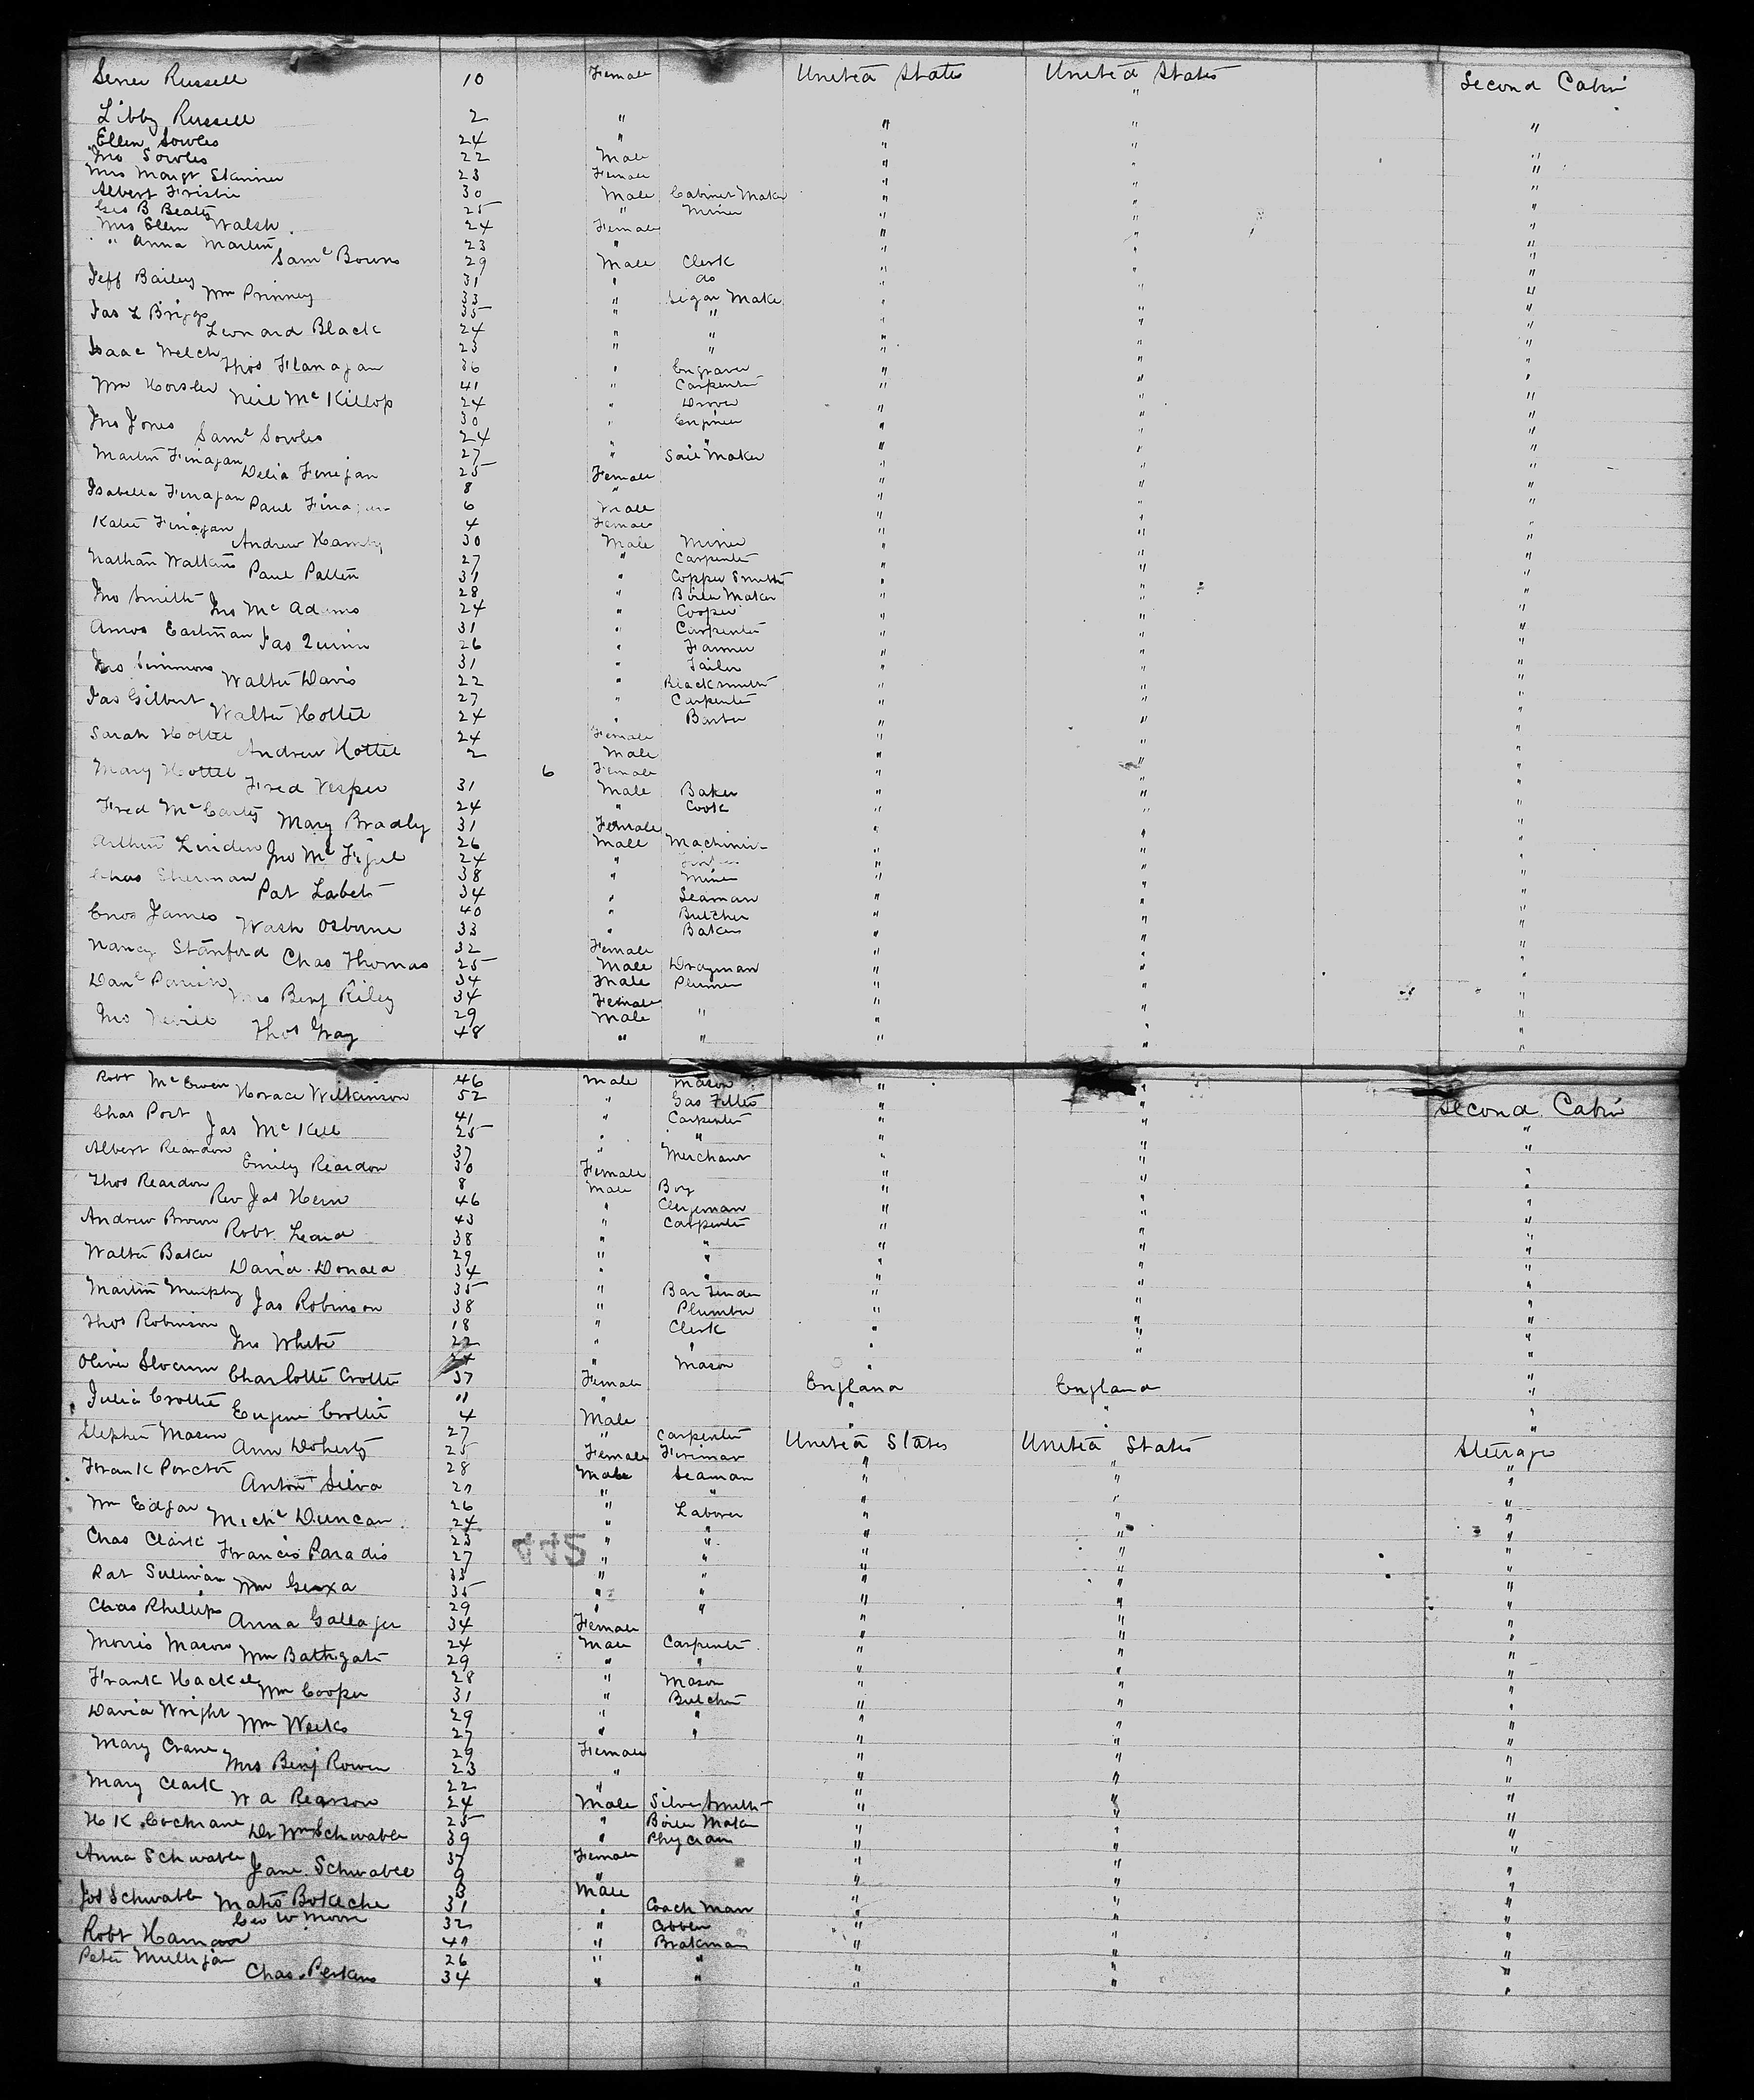 Russell 10 Female United States United States Second Cabin
"
Libby Russell 2 " " " "
Ellen Sowles 24 " " " "
Jno Sowles 22 Male " " "
Mrs Margt Skinner 23 Female " " "
Albert Frisbie 30 Male Cabinet Maker " " "
Geo B Beatty 25 " Miner " " "
Mrs Ellen Walsh 24 Female " " "
" Anna Martin 23 " " " "
Saml Bowns 29 Male Clerk " " "
Jeff Bailey 31 " do " " "
Wm Prinney 33 " Segar Maker " " "
Jas L Briggs 35 " " " " "
Leonard Black 24 " " " " "
Isaac Welch 23 " " " " "
Thos Flanagan 36 " Engraver " " "
Wm Horsler 41 " Carpenter " " "
Neil McKillop 24 " Drover " " "
Jno Jones 30 " Engineer " " "
Saml Sowles 24 " " " " "
Martin Finagan 27 " Sail Maker " " "
Delia Finegan 25 Female " " "
Isabella Finagan 8 " " " "
Paul Finagan 6 Male " " "
Katie Finagan 4 Female " " "
Andrew Hamby 30 Male Miner " " "
Nathan Watkins 27 " Carpenter " " "
Paul Patten 31 " Copper Smith " " "
Jno Smith 28 " Boiler Maker " " "
Jno McAdams 24 " Cooper " " "
Amos Eastman 31 " Carpenter " " "
Jas Quinn 26 " Farmer " " "
Jno Simmons 31 " Tailor " " "
Walter Davis 22 " Blacksmith " " "
Jas Gilbert 27 " Carpenter " " "
Walter Hottel 24 " Barber " " "
Sarah Hottel 24 Female " " "
Andrew Hottel 2 Male " " "
Mary Hottel 6 Female " " "
Fred Vesper 31 Male Baker " " "
Fred McCarty 24 " Cook " " "
Mary Bradly 31 Female " " "
Arthur Linden 26 Male Machinis " " "
Jno McFigul 24 " " " "
Chas Sherman 38 " Miner " " "
Pat Labet 34 " Seaman " " "
Enos James 40 " Butcher " " "
Wash Osborne 33 " Baker " " "
Nancy Stanford 32 Female " " "
Chas Thomas 25 Male Drayman " " "
Danl Parish 34 Male Plumer " " "
Mrs Benj Riley 34 Female " " "
Jno Nevill 29 Male " " " "
Thos Gray 48 " " " " "
Robt McEwen 46 Male Mason " "
Horace Wilkinson 52 " Gas Fitter " " Second Cabin
Chas Port 41 " Carpenter " " "
Jas McKell 25 " " " " "
Albert Reardon 37 " Merchant " " "
Emily Reardon 30 Female " " "
Thos Reardon 8 Male Boy " " "
Rev Jas Hern 46 " Clergman " " "
Andrew Brown 43 " Carpenter " " "
Robt Leard 38 " " " " "
Walter Baker 29 " " " " "
David Donald 34 " " " " "
Martin Murphy 35 " Bar Tender " " "
Jas Robinson 38 " Plumber " " "
Thos Robinson 18 " Clerk " " "
Jno White 22 " " " " "
Oliver Slocum " Mason " " "
Charlotte Crottie 37 Female England England "
Julia Crottie 11 " " " "
Eugene Crottie 4 Male " " "
Stephen Mason 27 " Carpenter United States United States Steerage
Ann Doherty 25 Female " " "
Frank Porcter 28 Male Seaman " " "
Anton Silva 27 " " " " "
Wm Edgar 26 " Laborer " " "
Michl Duncan 24 " " " " "
Chas Clark 23 442 " " " " "
Francis Paradis 27 " " " " "
Pat Sullivan 33 " " " " "
Wm 35 " " " " "
Chas Phillips 29 " " " " "
Anna Gallager 34 Female " " "
Morris Mason 24 Male Carpenter " " "
Wm Bathgate 29 " " " " "
Frank Hackely 28 " Mason " " "
Wm Cooper 31 " Butcher " " "
David Wright 29 " " " " "
Wm Weeks 27 " " " " "
Mary Crane 29 Female " " "
Mrs Benj Rowen 23 " " " "
Mary Clark 22 " " " "
W A Pearson 24 Male Silver Smith " " "
H K Cochrane 25 " Boiler Maker " " "
Dr Wm Schwable 39 " Phycian " " "
Anna Schwable 37 Female " " "
Jane Schwable 9 " " " "
Jos Schwable 3 Male " " "
Mateo Bokeche 31 " Coach Man " " "
Geo W Moore 32 " Cobbler " " "
Robt Haman 41 " Brakman " " "
Peter Mulligan 26 " " " " "
Chas Perkins 34 " " " " "